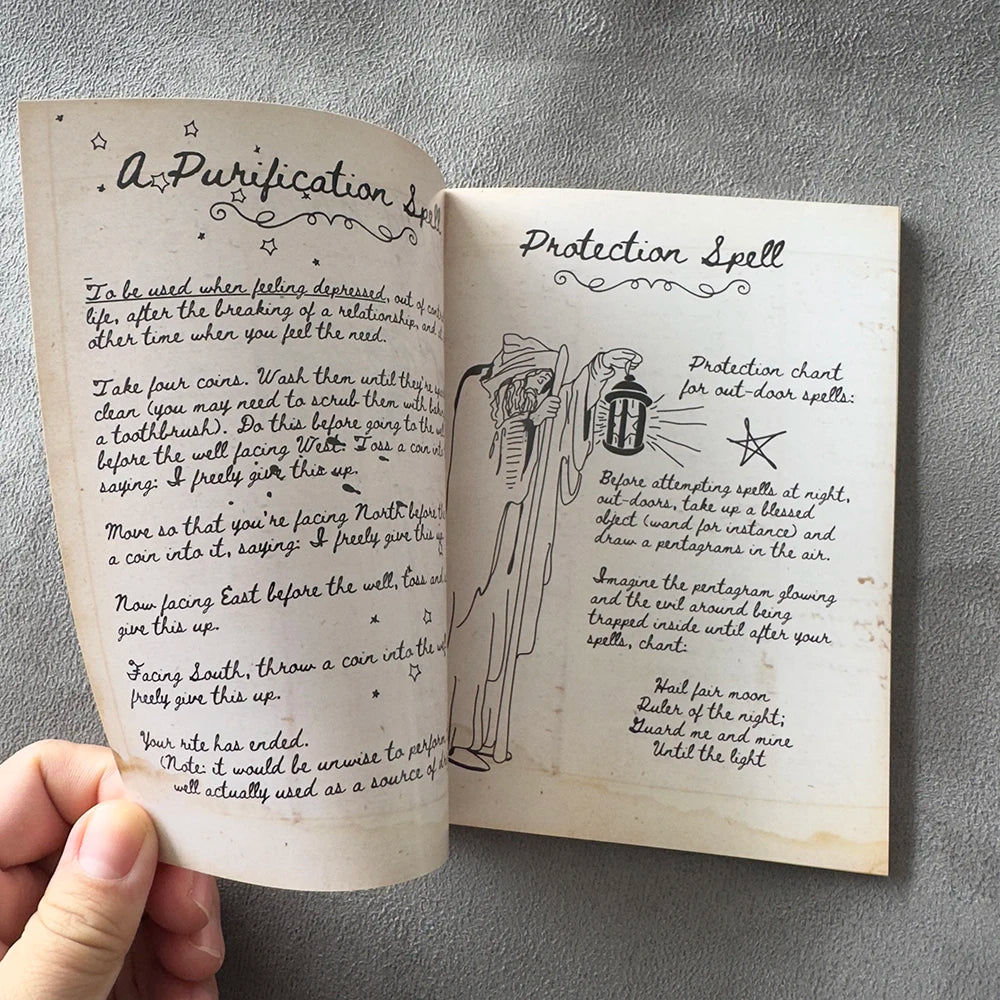 A Purification Spell
To be used when feeling depressed, out of
life, after the breaking of a relationship, and
other time when you feel the need.
Take four coins. Wash them until they're
clean (you may need to scrub them with
a toothbrush). Do this before going to the
before the well facing West. Toss a coin
saying: I freely give this up.
Move so that you're facing North before
a coin into it, saying: I freely give this up
Now facing East before the well, toss and
give this up.
Facing South, throw a coin into the
freely give this up.
Your rite has ended.
(Note: it would be unwise to perform
well actually used as a source of
Protection Spell
Protection chant
for out-door spells:
Before attempting spells at night,
out-doors, take up a blessed
object (wand for instance) and
draw a pentagrams in the air.
Imagine the pentagram glowing
and the evil around being
trapped inside until after your
spells, chant:
Hail fair moon
Ruler of the night;
Guard me and mine
Until the light